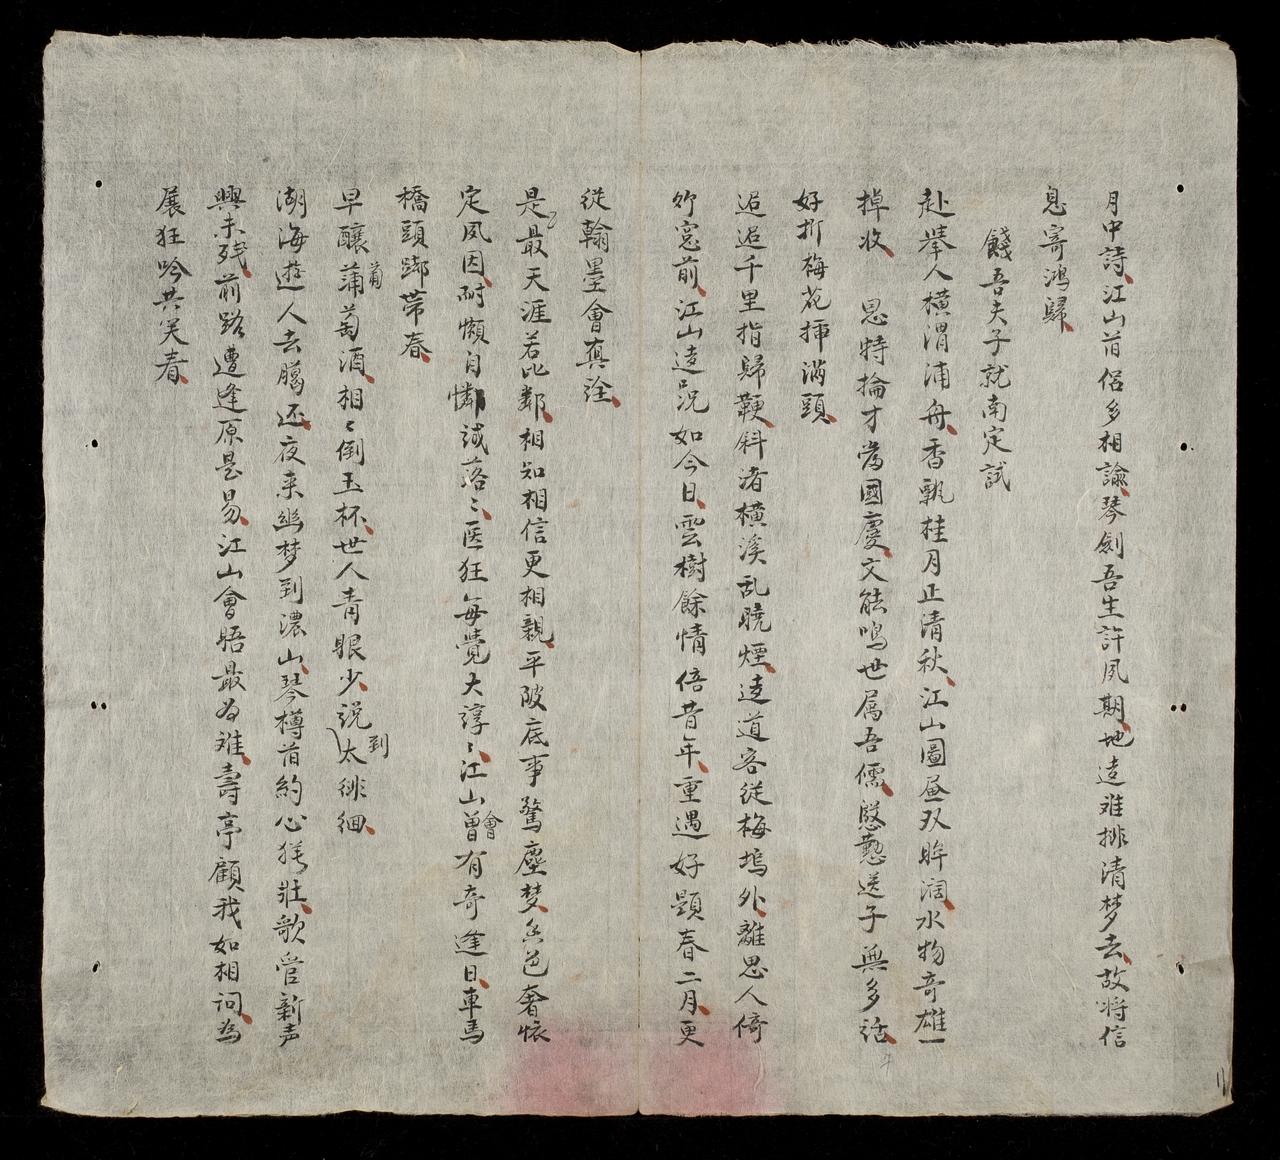 月中詩江山首侶多相諭琴劍吾生許夙期地遠难排清梦去故将信
息寄鴻歸
餞吾夫子就南定試
赴舉人橫渭浦舟香飄桂月正清秋江山圖画双眸濶水物奇雄一
掉收 恩特掄才為國慶文能鳴世属吾儒慇懃送子無多話
好折梅花挿滿頭
迢迢千里指歸鞭斜渚橫溪乱曉煙遠道客從梅塢外離思人倚
竹窓前江山遠况如今日雲樹餘情倍昔年重遇好題春二月更
從翰墨會真詮
是最天涯若比鄰相知相信更相親平陂底事驚塵梦邑奢懐
定夙因耐懶自憐誠落〻医狂每覺大諄〻江山曾會有奇逢日車馬
橋頭踋带春
早釀蒲葡萄酒相〻倒玉杯世人青眼少説到太徘徊
湖海遊人去臈还夜来幽梦到濃山琴樽首約心猶壯歌管新声
興未残前路遭逢原是易江山會晤最为难壽亭顧我如相问為
展狂吟共笑春